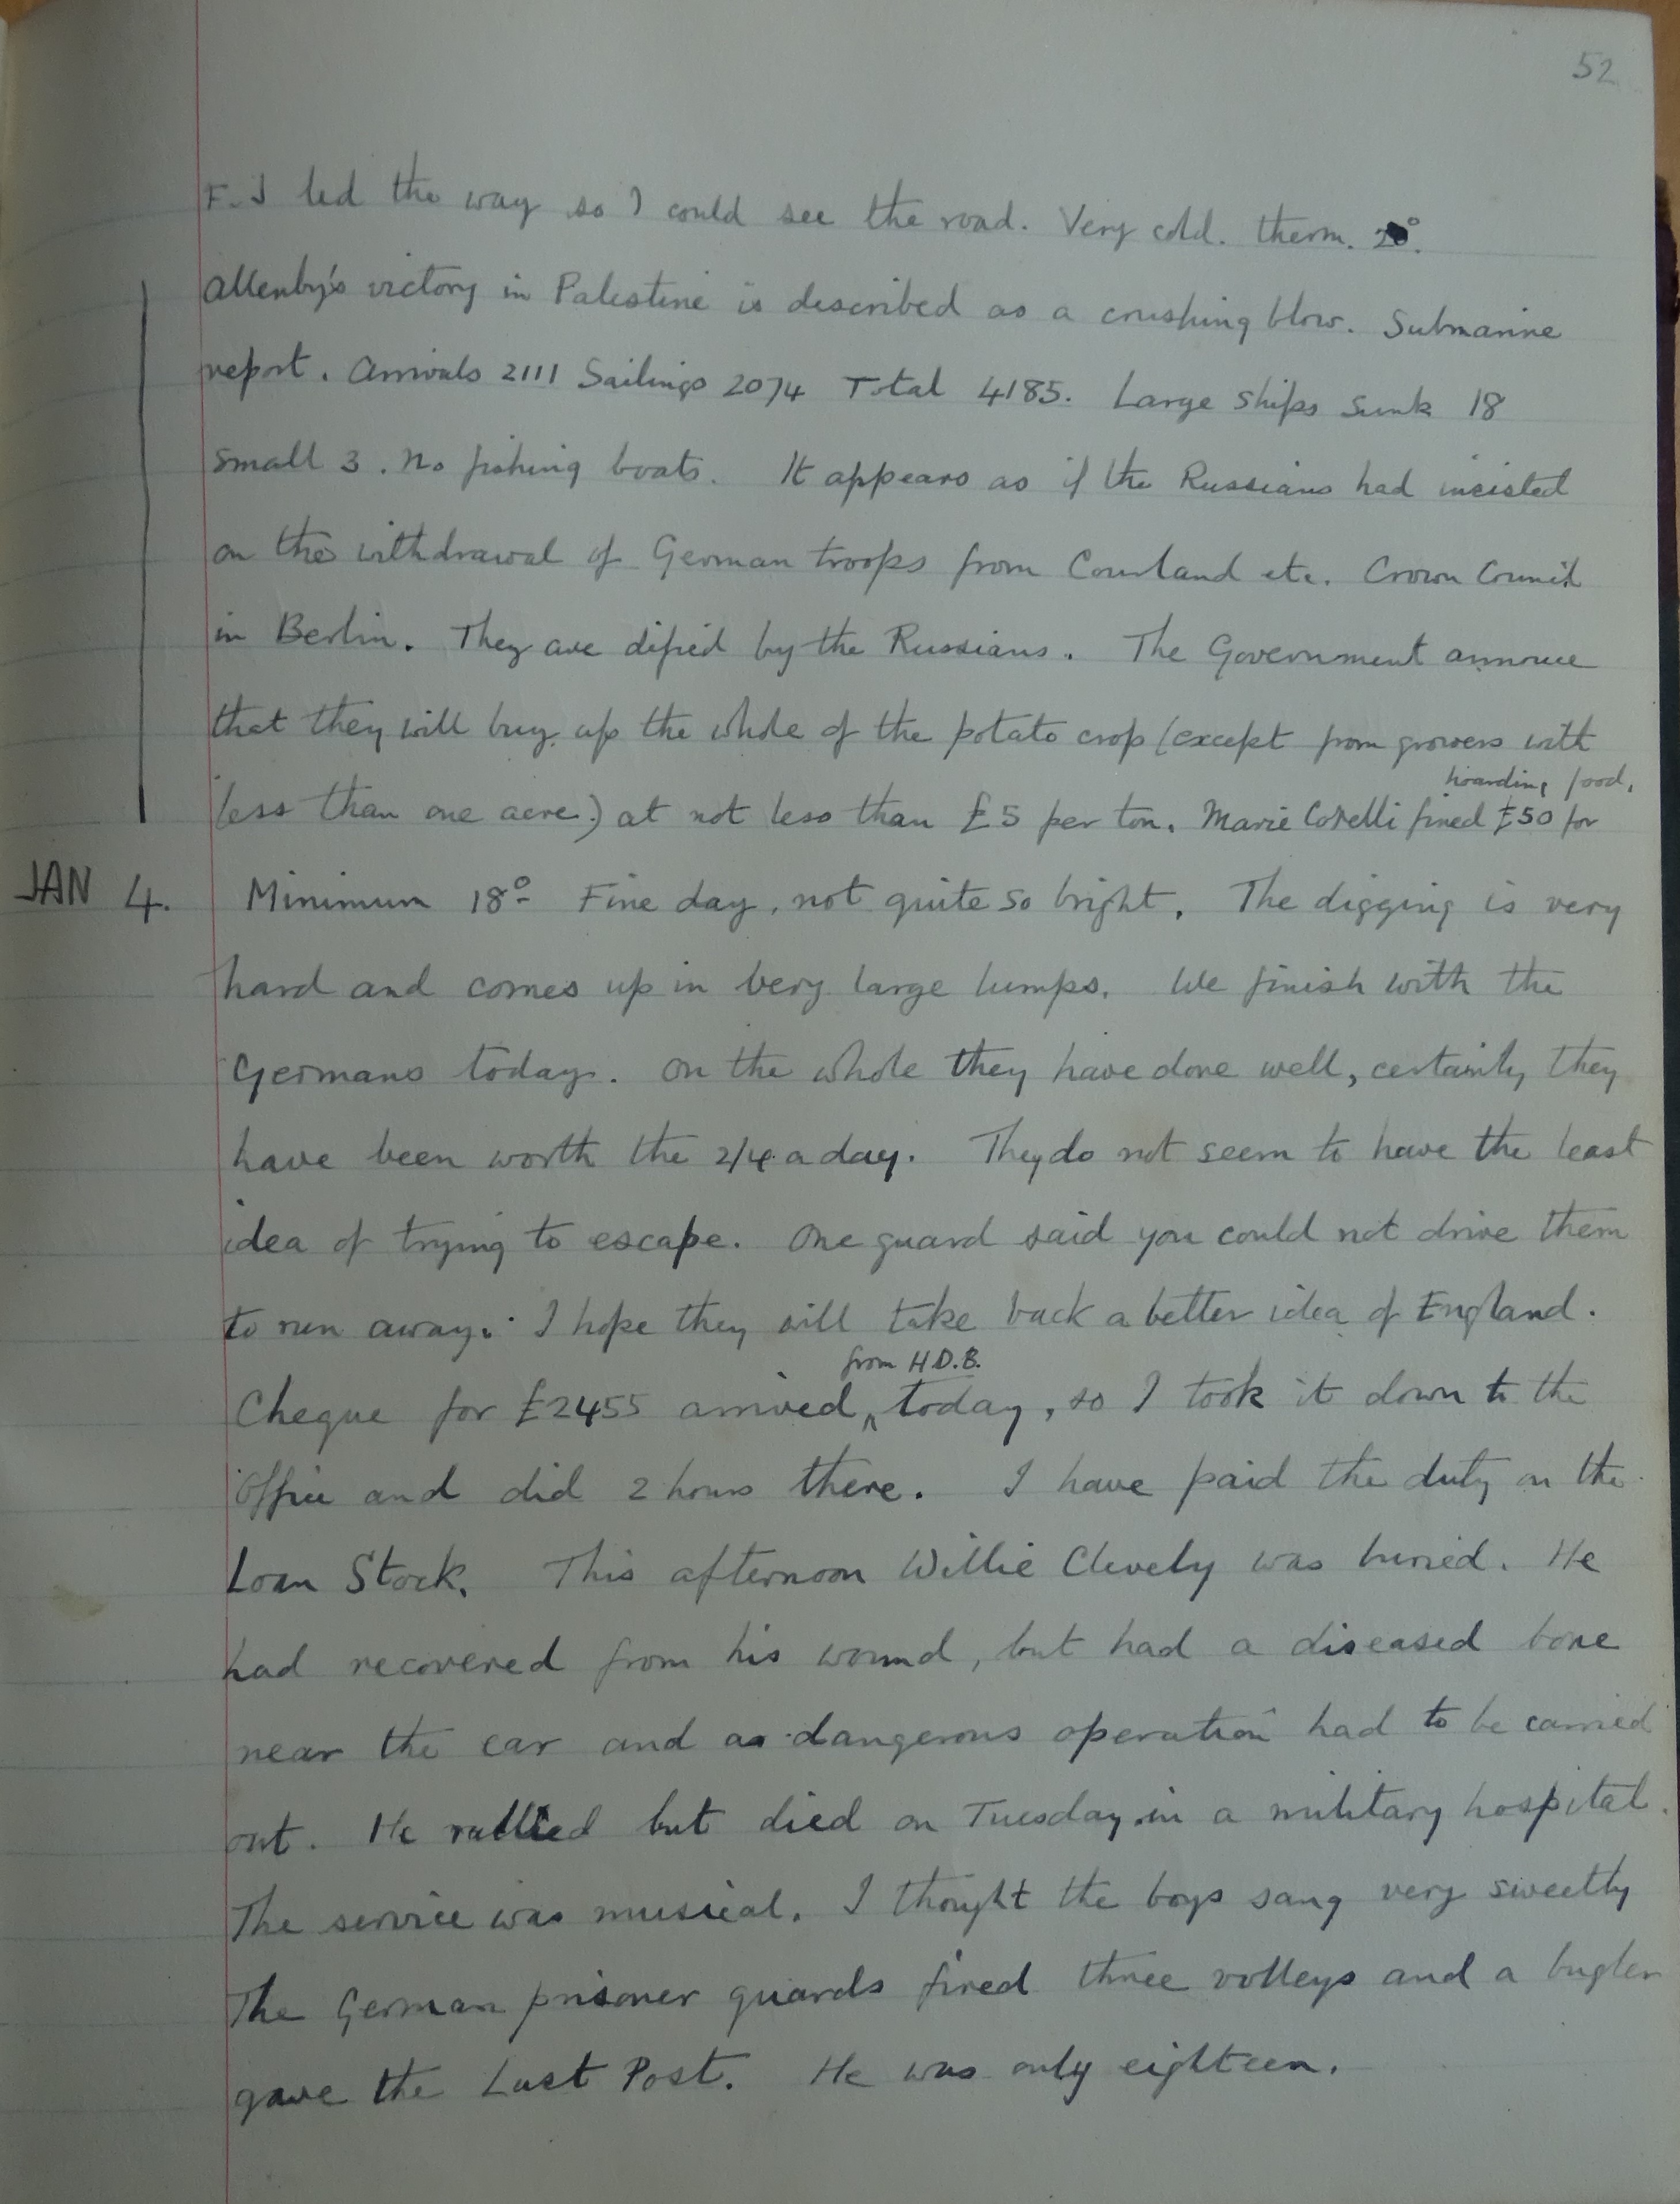 52
F. J led the way so I could see the road. Very cold. therm. 20°.
Allenby's victory in Palestine is described as a crushing blow. Submarine
report. Arrivals 2111 Sailings 2074 Total 4185. Large ships sunk 18
small 3. No fishing boats. It appears as if the Russians had insisted
on the withdrawal of German troops from Courland etc. Crown Council
in Berlin. They are defied by the Russians. The Government announce
that they will buy up the whole of the potato crop (except from growers with
hoarding food.
less than one acre) at not less than £5 per ton. Marie Corelli fined £50 for
JAN 4. Minimum 18° Fine day, not quite so bright. The digging is very
hard and comes up in very large lumps. We finish with the
Germans today. On the whole they have done well, certainly they
have been worth the 2/4 a day. They do not seem to have the least
idea of trying to escape. One guard said you could not drive them
to run away. I hope they will take back a better idea of England.
from H.D.B.
Cheque for £2455 arrived ^ today, so I took it down to the
Office and did 2 hours there. I have paid the duty on the
Loan Stock. This afternoon Willie Clevely was buried. He
had recovered from his wound, but had a diseased bone
near the ear and as dangerous operation had to be carried
out. He rallied but died on Tuesday in a military hospital.
The service was musical. I thought the boys sang very sweetly
The German prisoner guards fired three volleys and a bugler
gave the Last Post. He was only eighteen.